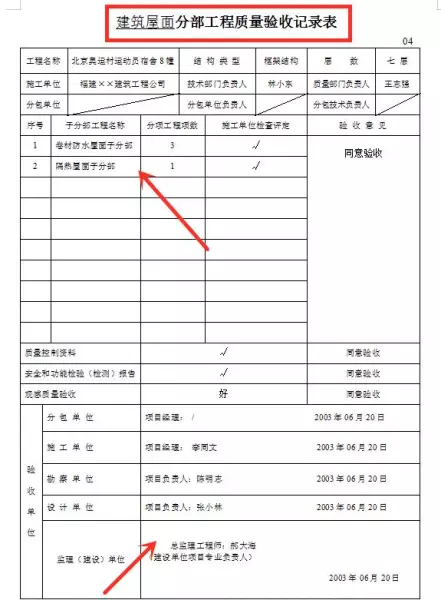 建筑屋面分部工程质量验收记录表
04
工程名称 北京奥运村运动员宿舍8幢 结构类型 框架结构 层数 七层
施工单位 福建××建筑工程公司 技术部门负责人 林小东 质量部门负责人 王志强
分包单位 分包单位负责人 分包技术负责人
序号 子分部工程名称 分项工程项数 施工单位检查评定 验收意见
1 卷材防水屋面子分部 3 √ 同意验收
2 隔热屋面子分部 1 √
质量控制资料 √ 同意验收
安全和功能检验（检测）报告 √ 同意验收
观感质量验收 好 同意验收
验收单位
分包单位 项目经理： / 2003 年 06 月 20 日
施工单位 项目经理： 李同文 2003 年 06 月 20 日
勘察单位 项目负责人：陈明志 2003 年 06 月 20 日
设计单位 项目负责人：张小林 2003 年 06 月 20 日
监理（建设）单位 总监理工程师：郝大海
（建设单位项目专业负责人）
2003 年 06 月 20 日